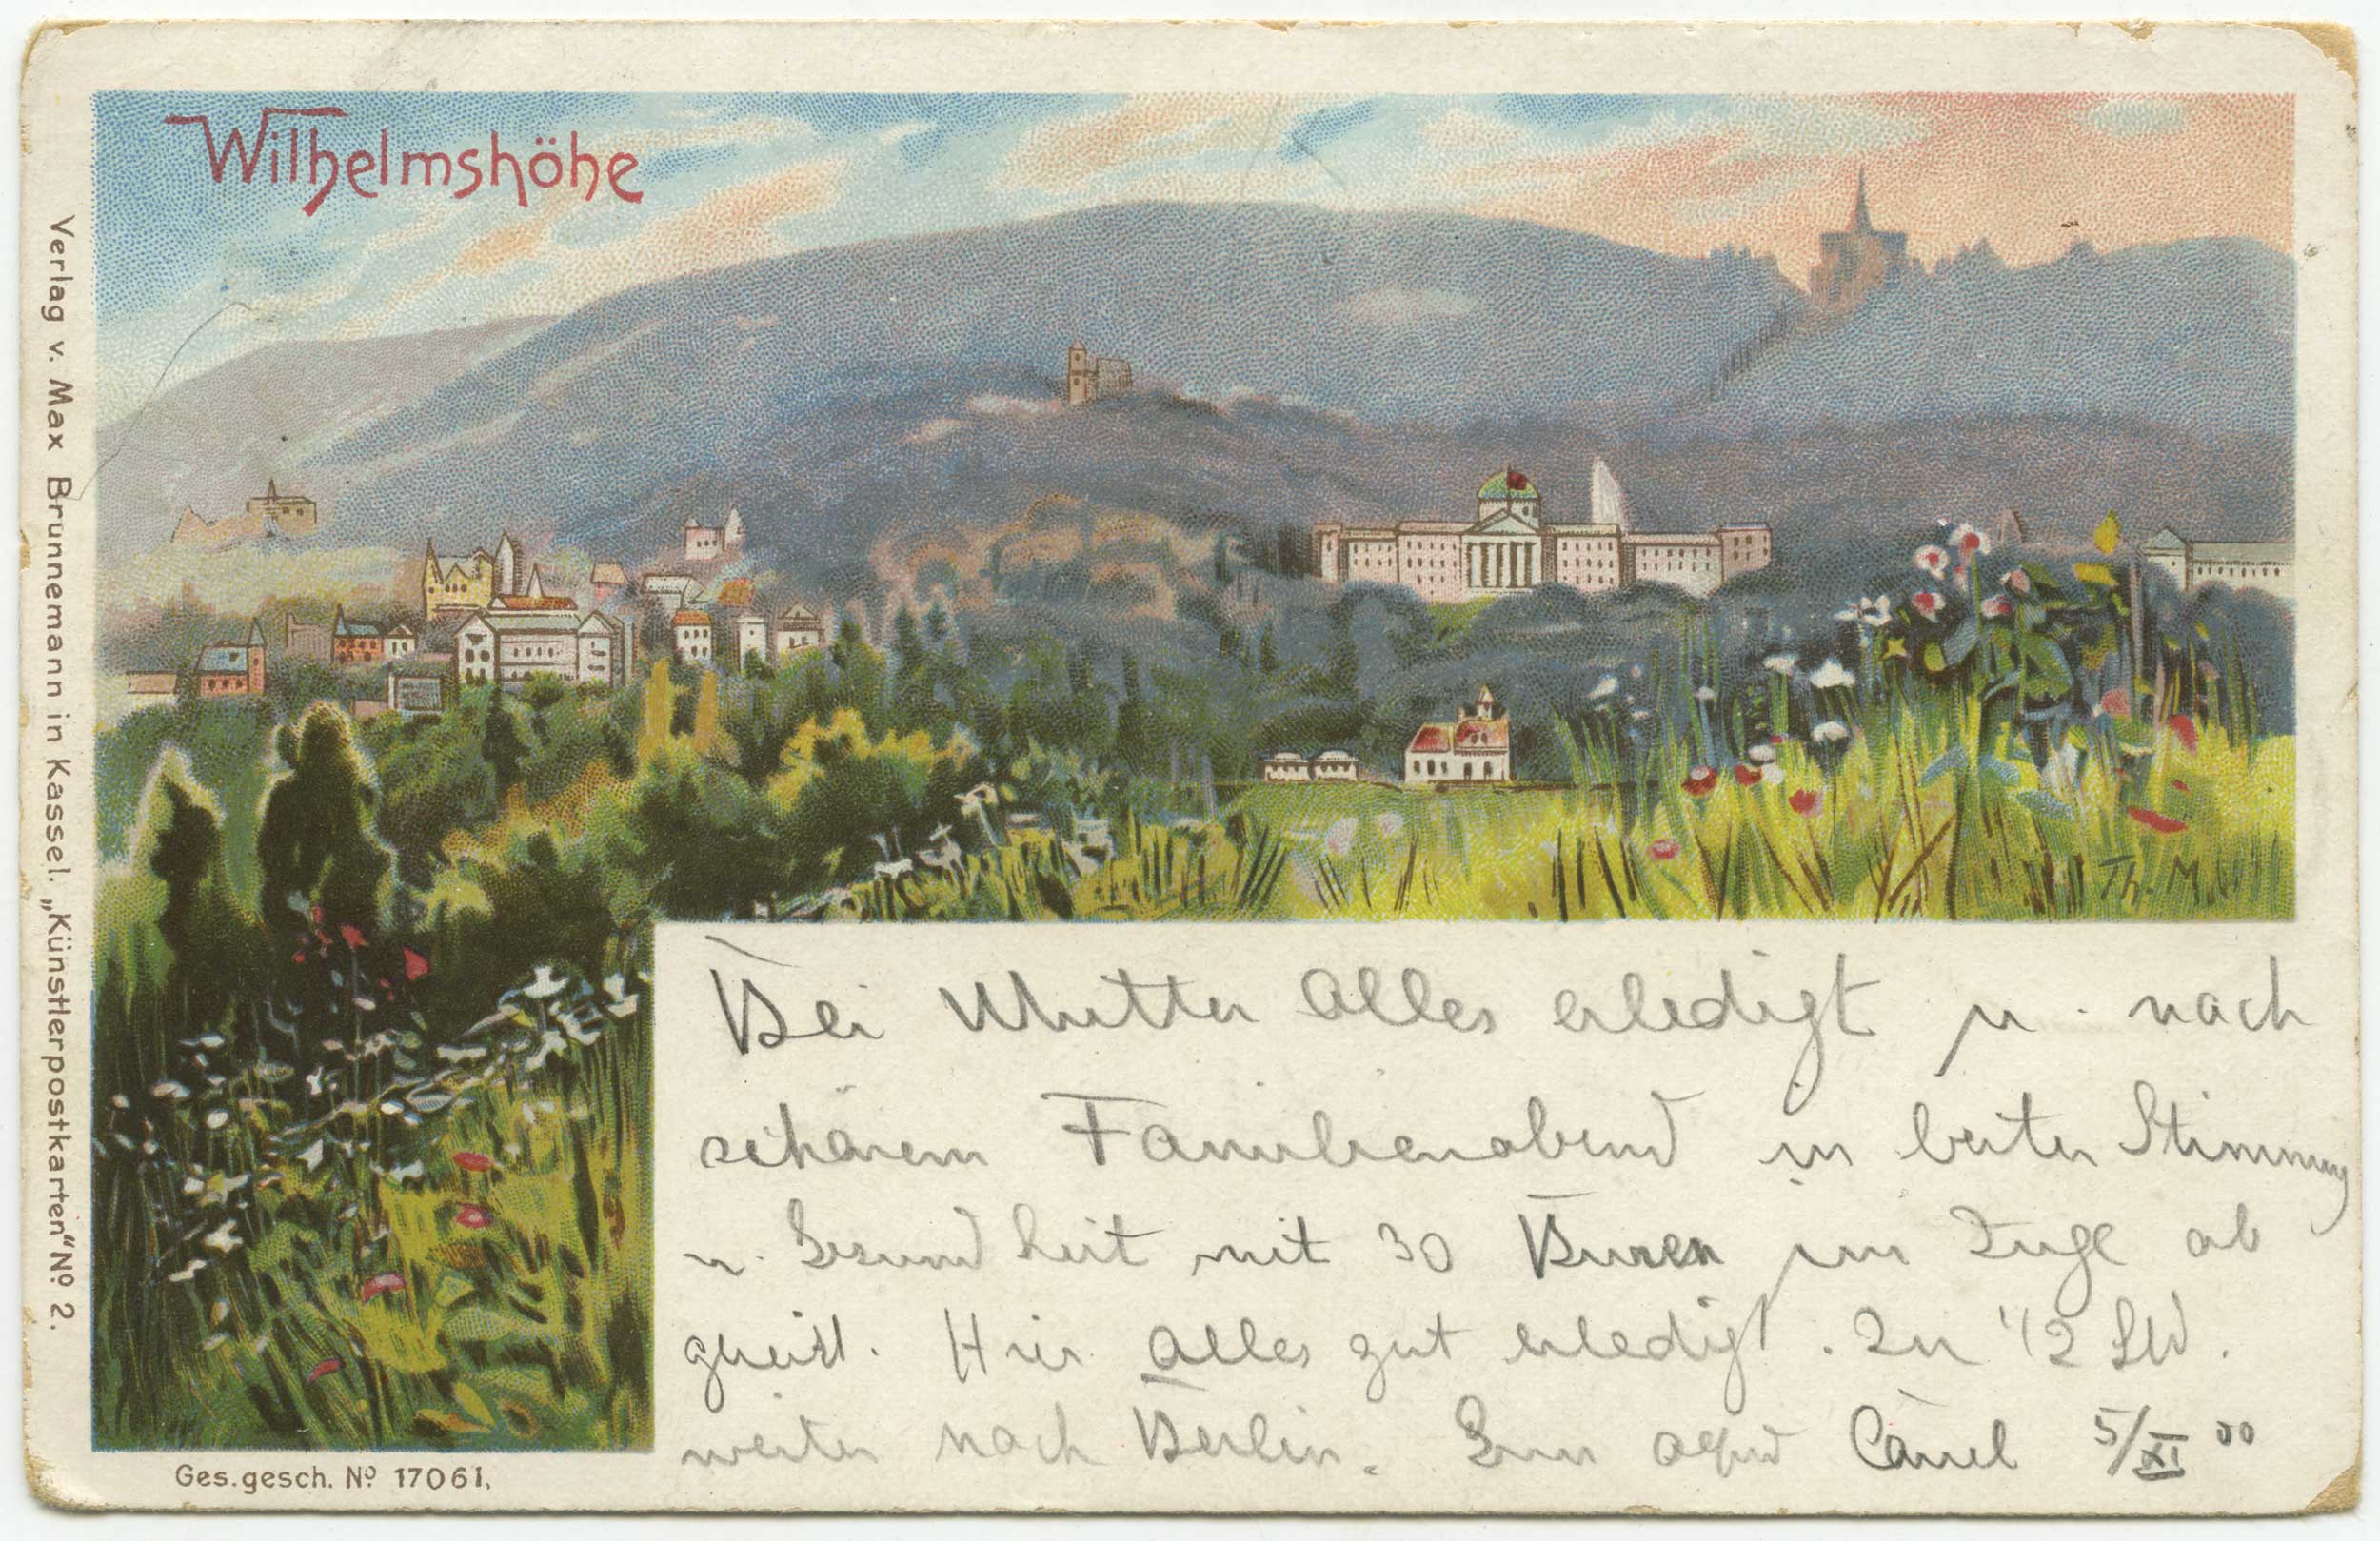 Wilhelmshöhe
Verlag v. Max Brunnemann in Kassel. „Künstlerpostkarten“ No 2.
Th. M.
Bei Mutter Alles erledigt u. nach
schönem Familienabend in bester Stimmung
u. Gesundheit mit 30 Buren im Zuge ab
gereist. Hier Alles gut erledigt. In 1/2 Std.
weiter nach Berlin. Cassel 5/XI 00
Ges. gesch. No 17061.